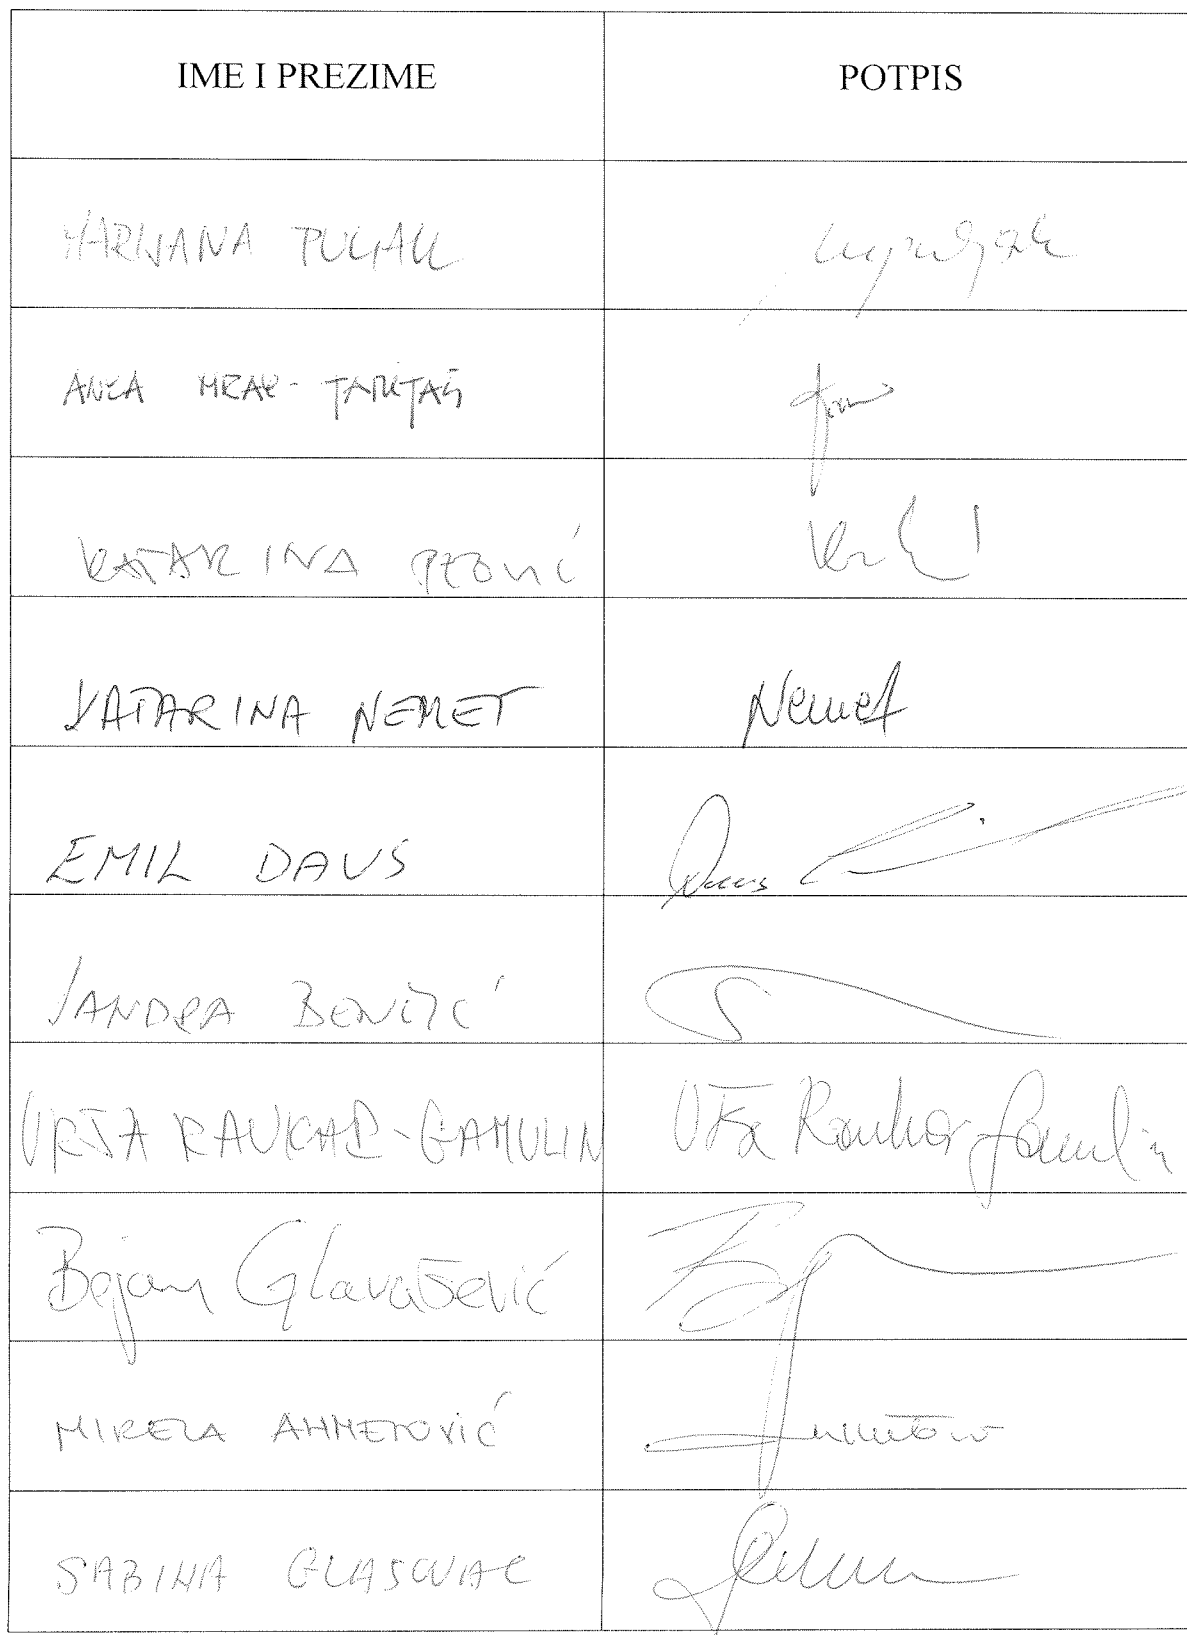 IME I PREZIME POTPIS
MARIJANA PULJAK
ANKA MRAK-TARITAŠ
KATARINA PEOVIĆ
KATARINA NEMET Nemet
EMIL DAUS Daus
SANDRA BENČIĆ
URŠA RAUKAR-GAMULIN Urša Raukar Gamulin
Bojan Glavašević
MIRELA AHMETOVIĆ
SABINA GLASOVAC